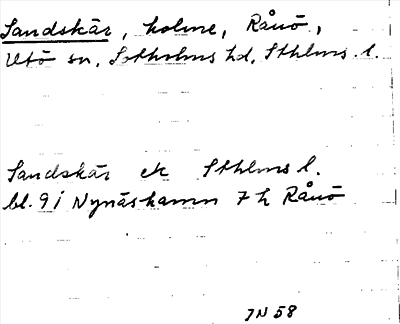 Sandskär, holme, Rånö,
Utö sn, Sotholms hd, Sthlms l.
Sandskär ek Sthlms l.
bl. 9 i Nynäshamn 7 h Rånö
JN 58